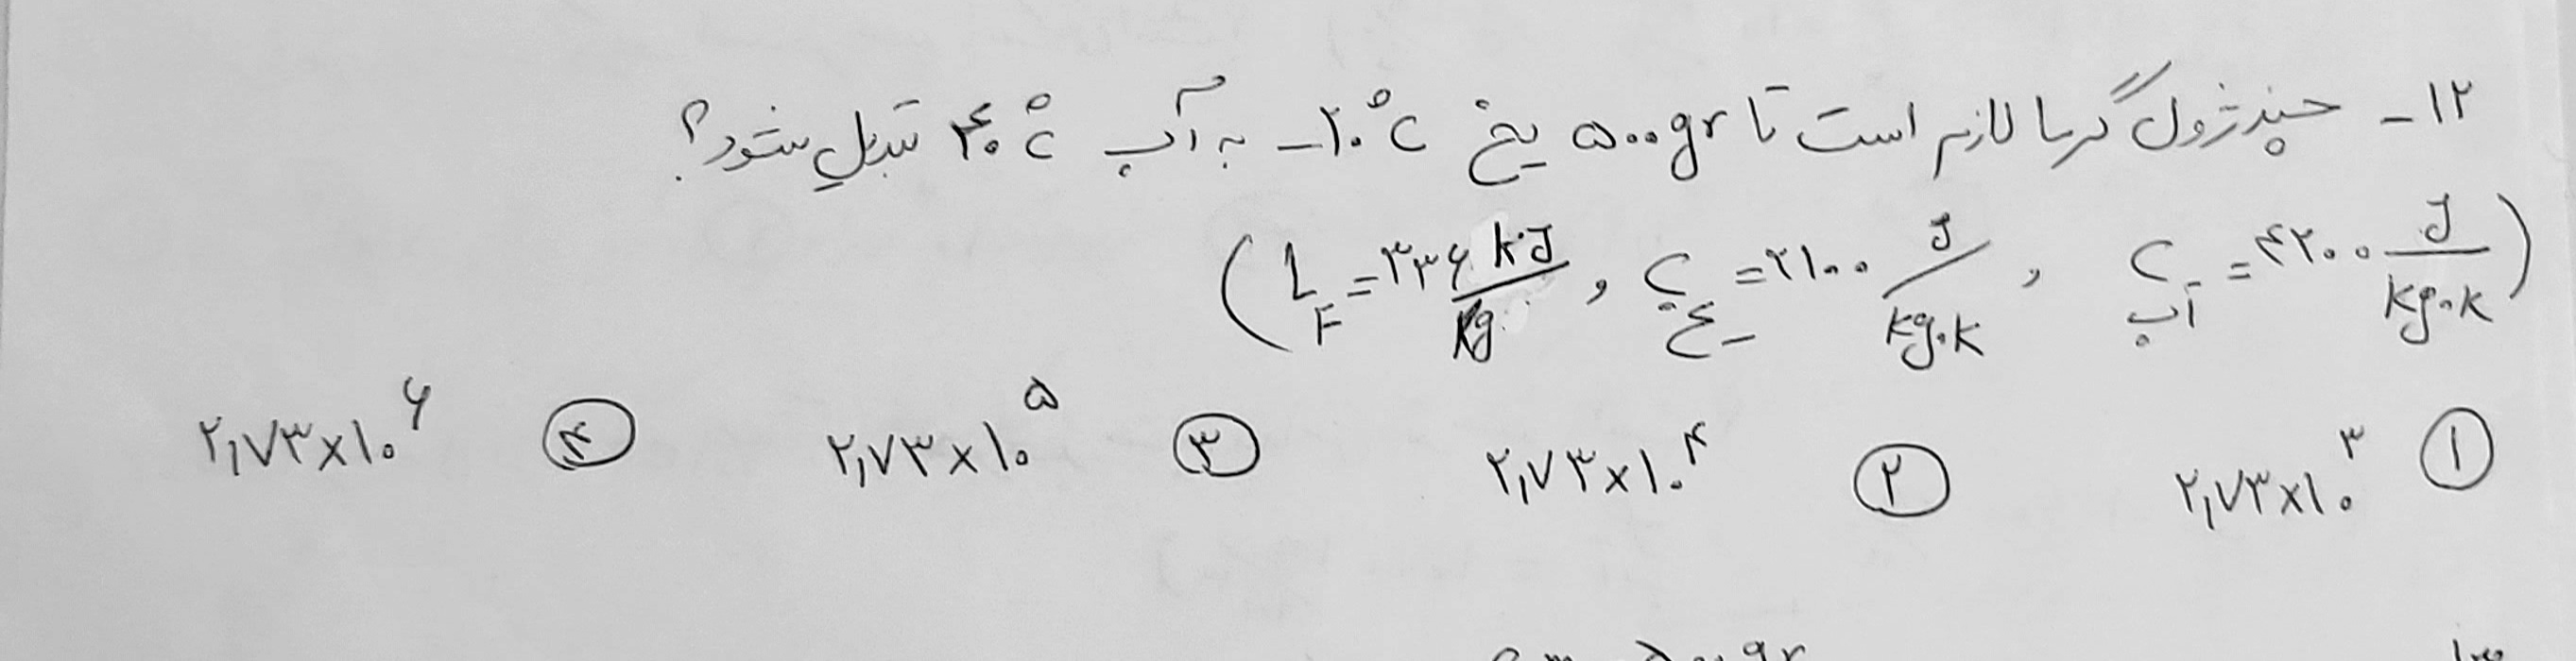 ۱۲- چند ژول گرما لازم است تا ۵۰۰gr یخ ‎-۲۰°C به آب ۴۰°C تبدیل شود؟
(L_F = ۳۳۶ kJ/kg , C_یخ = ۲۱۰۰ J/kg.K , C_آب = ۴۲۰۰ J/kg.K)
① ۲٫۷۳×۱۰^۳ ② ۲٫۷۳×۱۰^۴ ③ ۲٫۷۳×۱۰^۵ ④ ۲٫۷۳×۱۰^۶